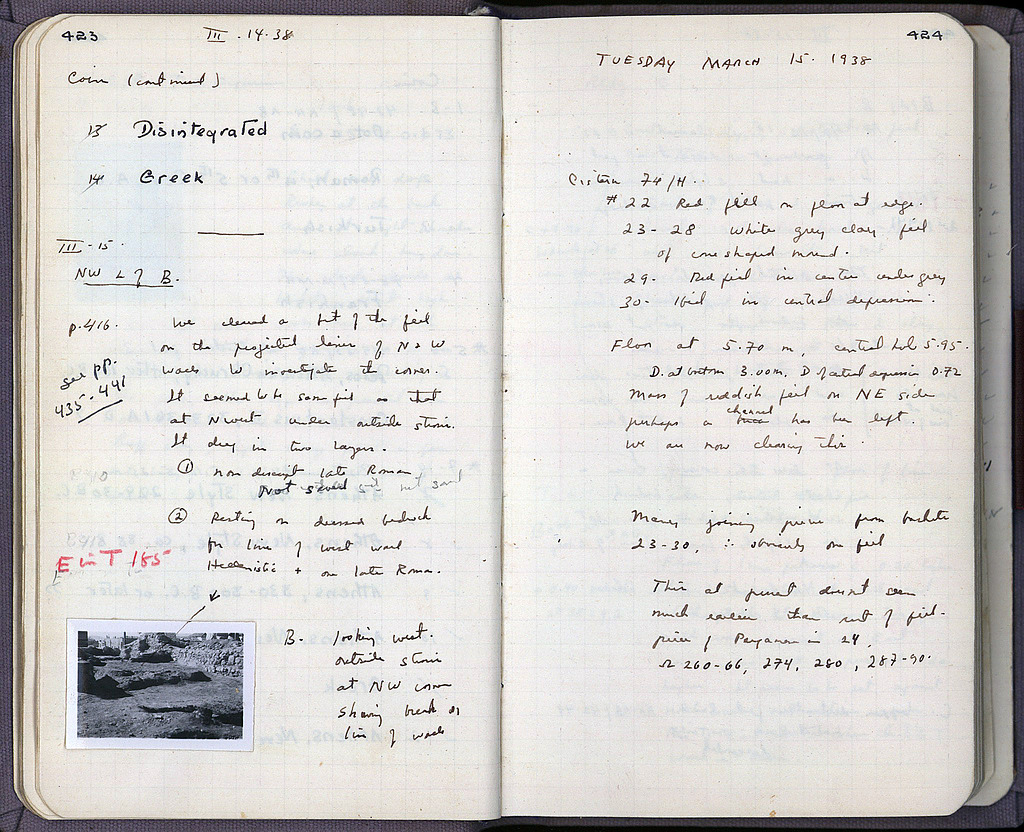 423
III . 14 . 38
Coins (continued)
13 Disintegrated
14 Greek
III - 15 .
NW L of B.
p. 416.
We cleared a bit of the fill
on the projected lines of N & W
walls to investigate the corner.
see pp.
435-441
It seemed to be same fill as that
at N west under outside stairs.
It dug in two layers.
① non descript late Roman
Not saved
② Resting on dressed bedrock
for line of west wall
Hellenistic + one late Roman.
E in T 155
B. looking west.
outside stairs
at NW corner
showing break in
line of wall
424
TUESDAY MARCH 15. 1938
Cistern 74/H.
#22 Red fill on floor at edge.
23-28 white grey clay fill
of cone shaped mound.
29. Red fill in center under grey
30- in central depression.
Floor at 5.70 m, central hole 5.95.
D. at bottom 3.00m. D of central depression 0.72
Mass of reddish fill on NE side
perhaps a channel has been left.
We are now clearing this.
Many joining pieces from baskets
23-30, ∴ obviously one fill
This at present doesn't seem
much earlier than rest of fill.
piece of Pergamene in 24,
Ω 260-66, 274, 280, 287-90.